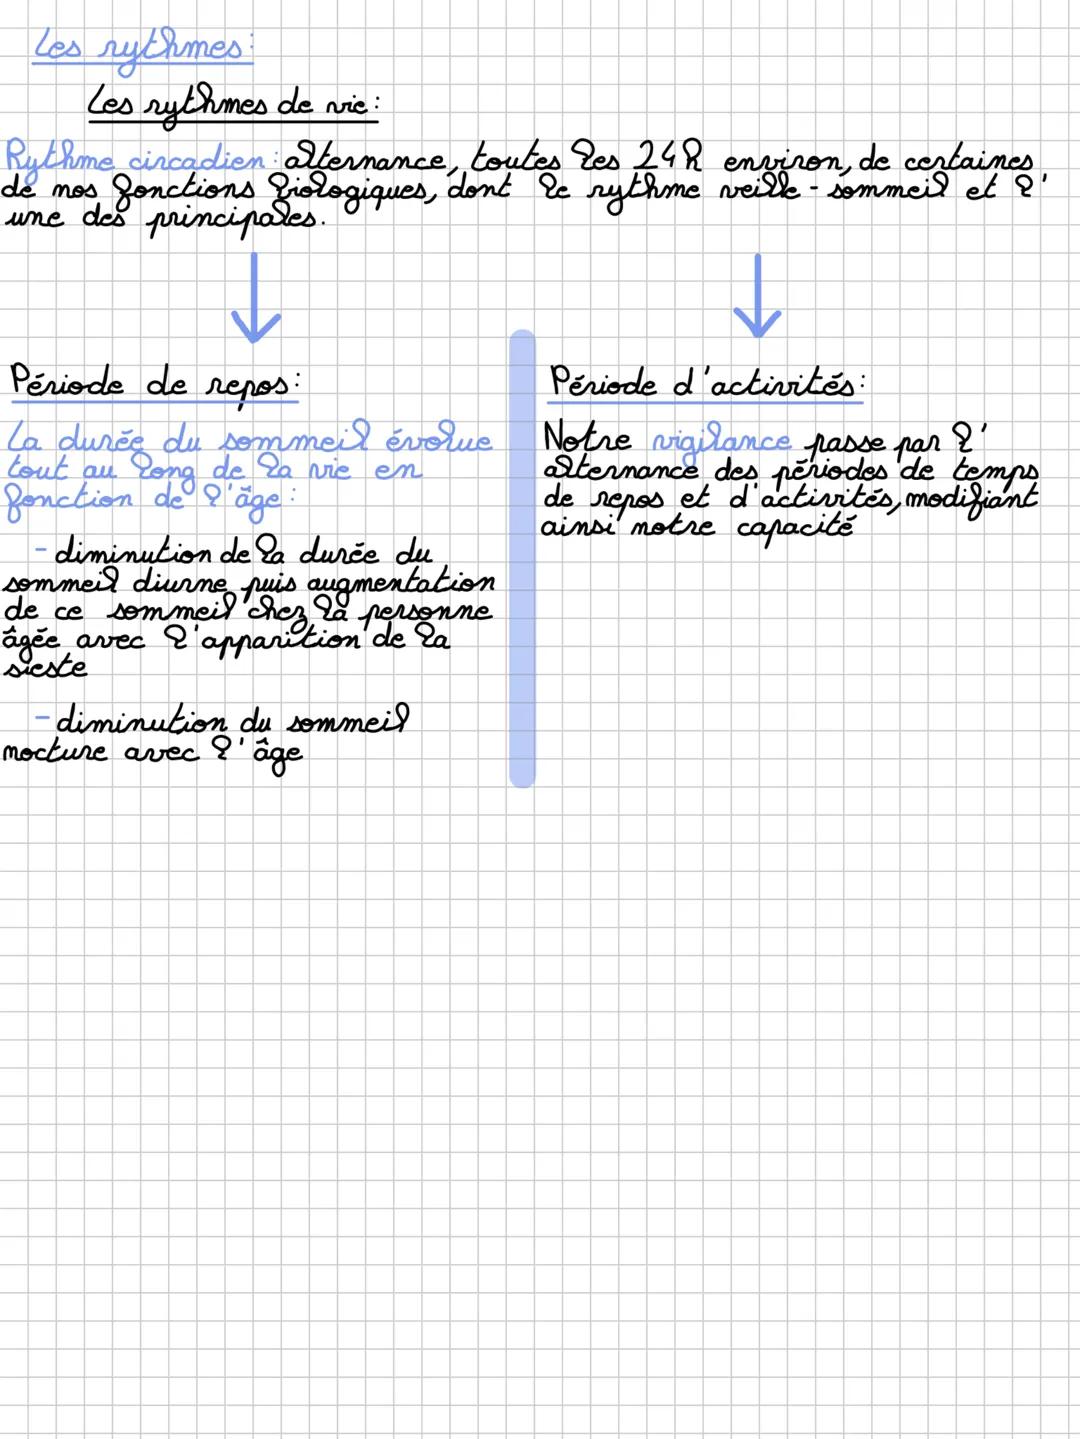 Les rythmes:
Les rythmes de vie:
Rythme circadien: alternance, toutes les 24h environ, de centaines
de nos fonctions biologiques, dont le rythme veille-sommeil et l'
une des principales.
Période de repos:
La durée du sommeil évolue
tout au long de la vie en
fonction de l'âge:
- diminution de la durée du
sommeil diurne, puis augmentation
de ce sommeil chez la personne
âgée avec l'apparition de la
sieste
- diminution du sommeil
nocture avec l'âge
Période d'activités:
Notre vigilance passe par l'
alternance des périodes de temps
de repos et d'activités, modifiant
ainsi notre capacité